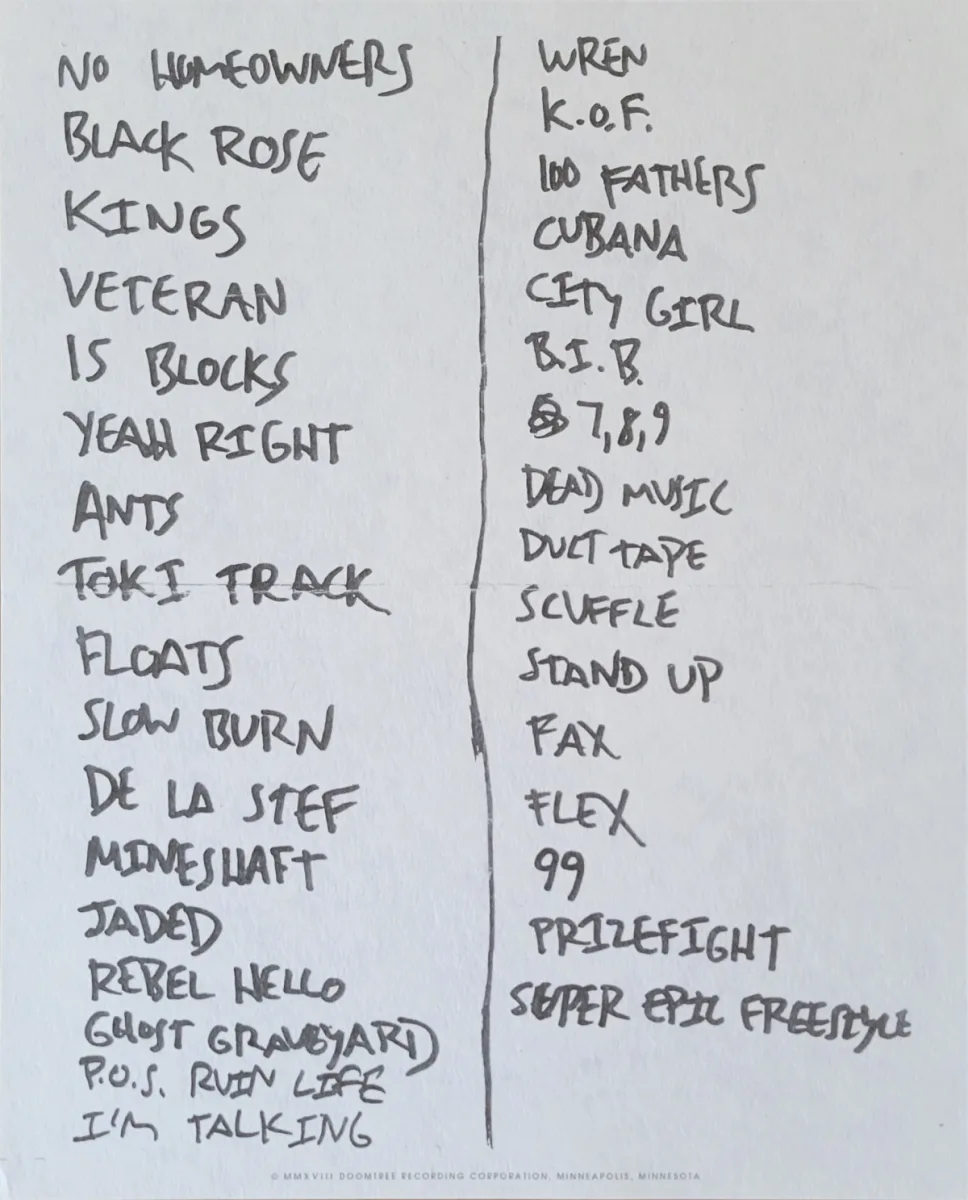 NO HOMEOWNERS
BLACK ROSE
KINGS
VETERAN
15 BLOCKS
YEAH RIGHT
ANTS
TOKI TRACK
FLOATS
SLOW BURN
DE LA STEF
MINESHAFT
JADED
REBEL HELLO
GHOST GRAVEYARD
P.O.S. RUIN LIFE
I'M TALKING
WREN
K.O.F.
100 FATHERS
CUBANA
CITY GIRL
B.I.B.
7,8,9
DEAD MUSIC
DUCT TAPE
SCUFFLE
STAND UP
FAX
FLEX
99
PRIZEFIGHT
SUPER EPIC FREESTYLE
© MMXVIII DOOMTREE RECORDING CORPORATION, MINNEAPOLIS, MINNESOTA